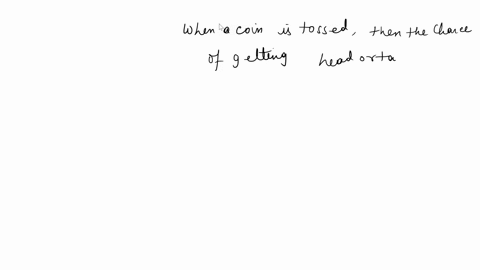 When a coin is tossed, then the chance
of getting head or ta